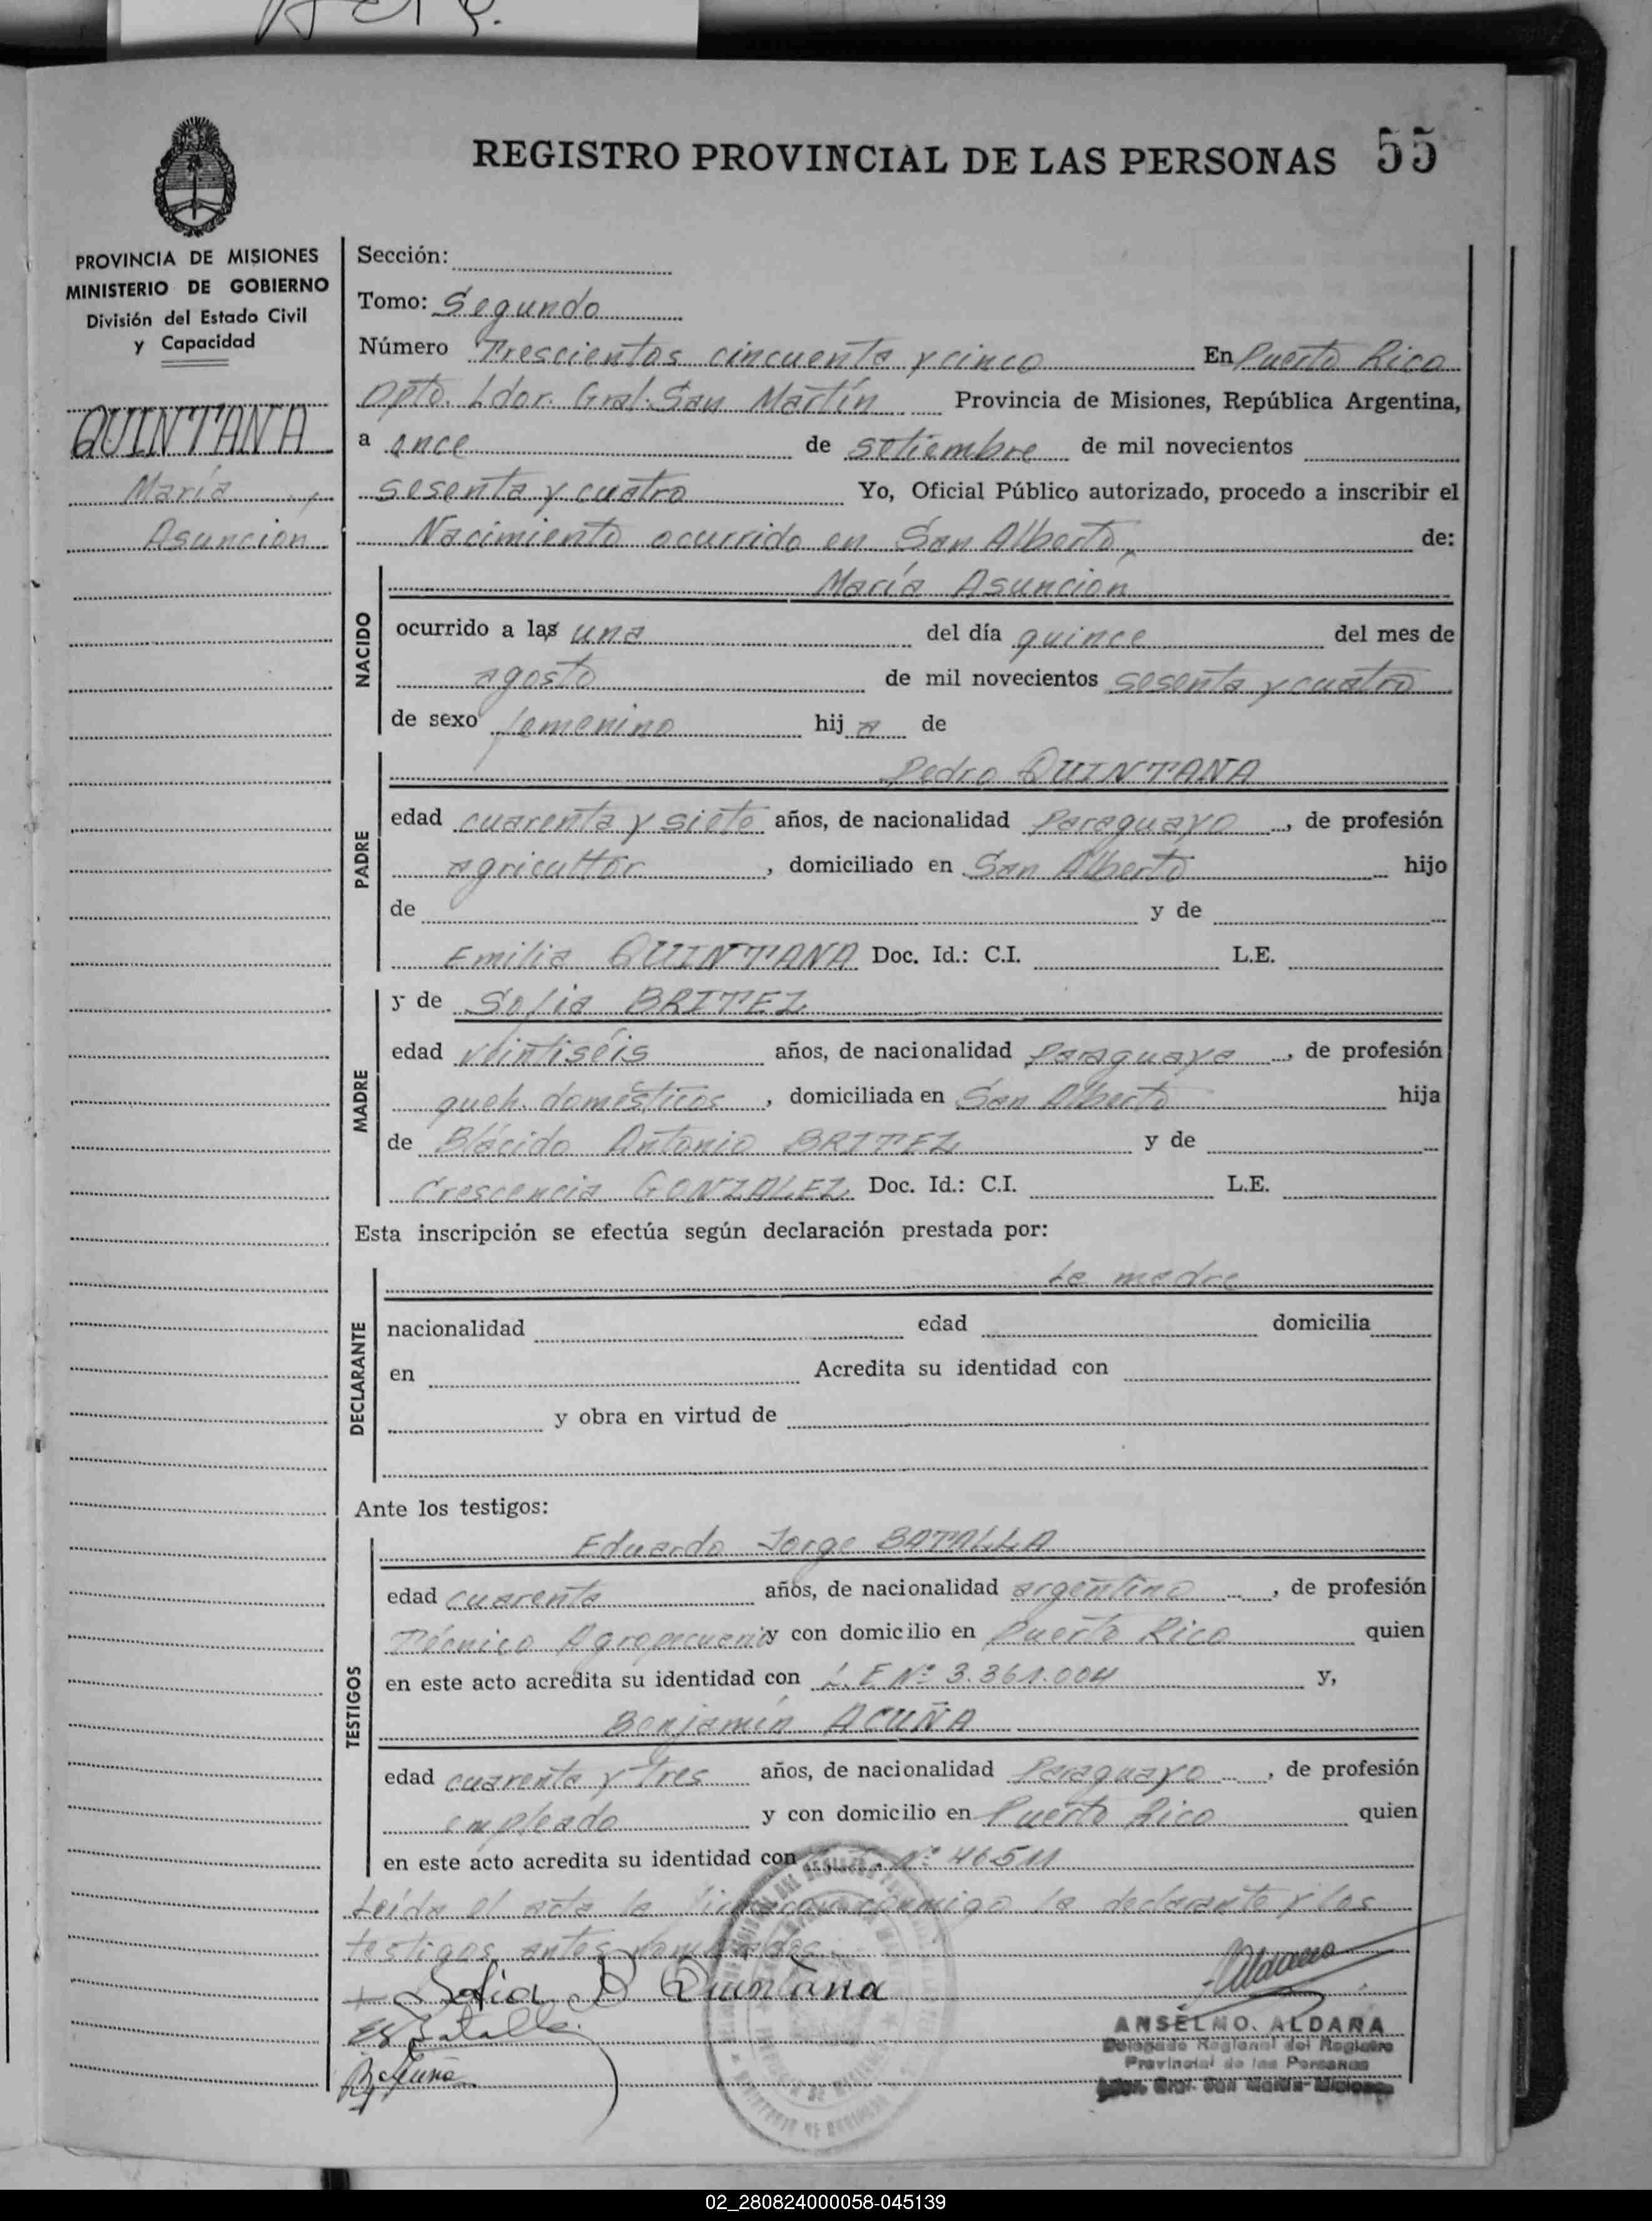 REGISTRO PROVINCIAL DE LAS PERSONAS 55
PROVINCIA DE MISIONES
MINISTERIO DE GOBIERNO
División del Estado Civil
y Capacidad
QUINTANA
María
Asunción
Sección:
Tomo: Segundo
Número Trescientos cincuenta y cinco En Puerto Rico
Dpto. Ldor. Gral. San Martín Provincia de Misiones, República Argentina,
a once de setiembre de mil novecientos
sesenta y cuatro Yo, Oficial Público autorizado, procedo a inscribir el
Nacimiento ocurrido en San Alberto, de:
NACIDO
María Asunción
ocurrido a las una del día quince del mes de
agosto de mil novecientos sesenta y cuatro
de sexo femenino hij a de
PADRE
Pedro QUINTANA
edad cuarenta y siete años, de nacionalidad Paraguayo, de profesión
agricultor, domiciliado en San Alberto hijo
de y de
Emilia QUINTANA Doc. Id.: C.I. L.E.
MADRE
y de Sofia BRITEZ
edad veintiséis años, de nacionalidad Paraguaya, de profesión
queh. domésticos, domiciliada en San Alberto hija
de Blácido Antonio BRITEZ y de
Crescencia GONZALEZ Doc. Id.: C.I. L.E.
Esta inscripción se efectúa según declaración prestada por:
DECLARANTE
La madre
nacionalidad edad domicilia
en Acredita su identidad con
y obra en virtud de
Ante los testigos:
TESTIGOS
Eduardo Jorge BATALLA
edad cuarenta años, de nacionalidad argentino, de profesión
Técnico Agropecuario y con domicilio en Puerto Rico quien
en este acto acredita su identidad con L.E Nº 3.361.004 y,
Benjamín ACUÑA
edad cuarenta y tres años, de nacionalidad Paraguayo, de profesión
empleado y con domicilio en Puerto Rico quien
en este acto acredita su identidad con Nº 46511
Leída el acta la firma conmigo la declarante y los
testigos antes nombrados.
Sofia B Quintana
EJBatalla
B Acuña
ANSELMO. ALDARA
Delegado Regional del Registro
Provincial de las Personas
Gral. San Martín-Misiones
02_280824000058-045139